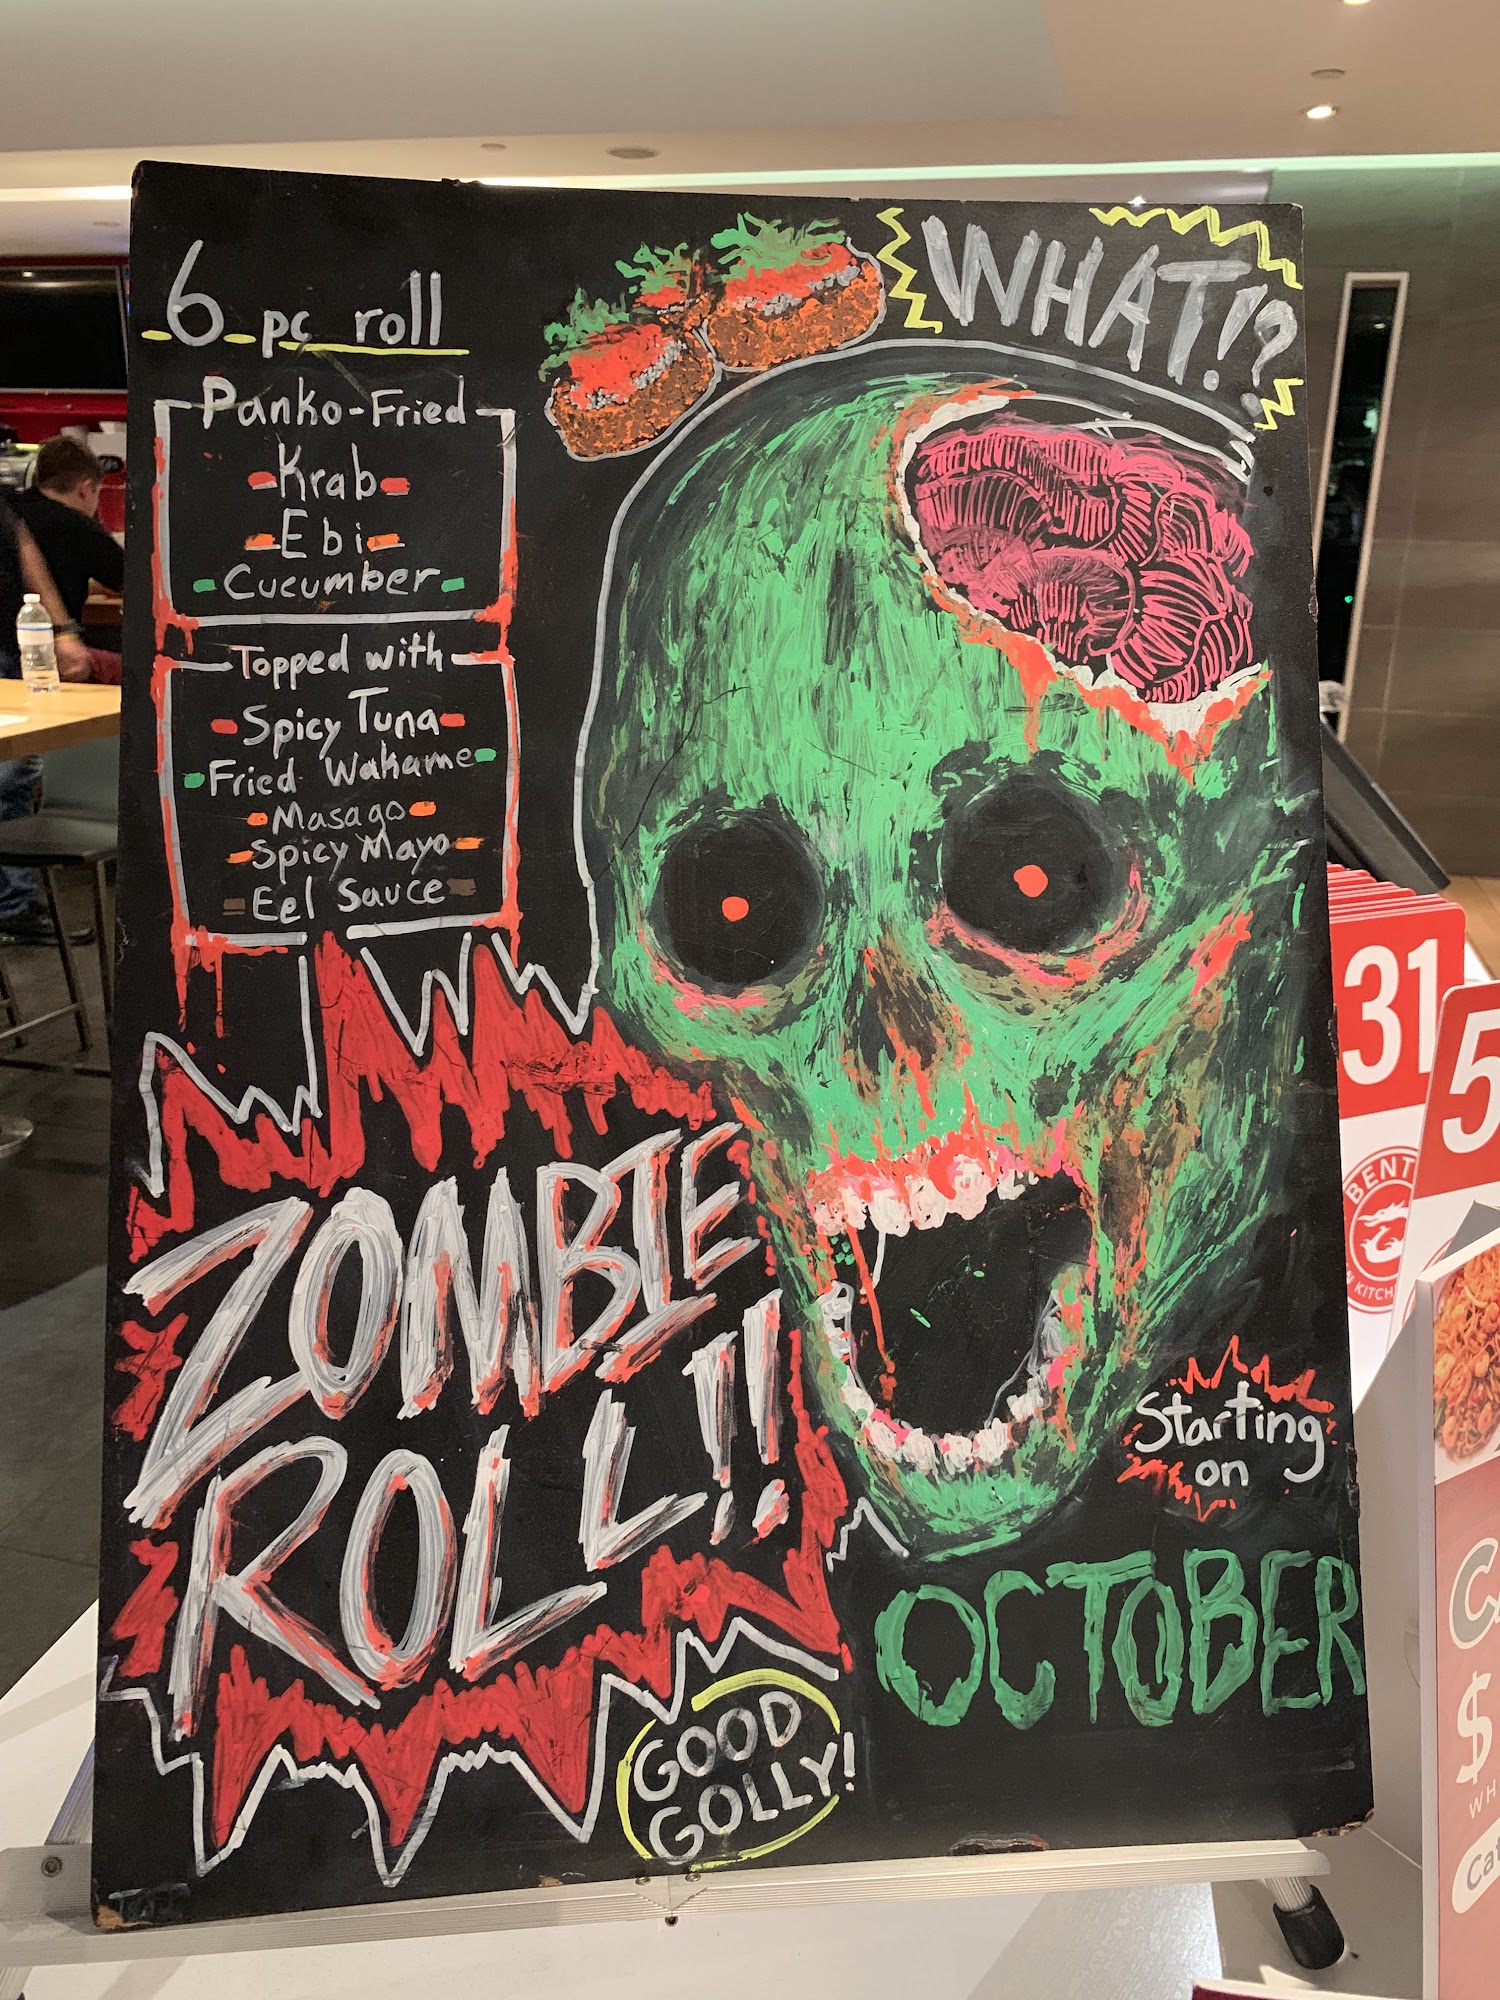 6 pc roll
Panko-Fried
Krab
Ebi
Cucumber
Topped with
Spicy Tuna
Fried Wakame
Masago
Spicy Mayo
Eel Sauce
WHAT!?
ZOMBIE
ROLL!!
GOOD
GOLLY!
Starting
on
OCTOBER
31
5
BENT
KITCH
$
WH
Cat